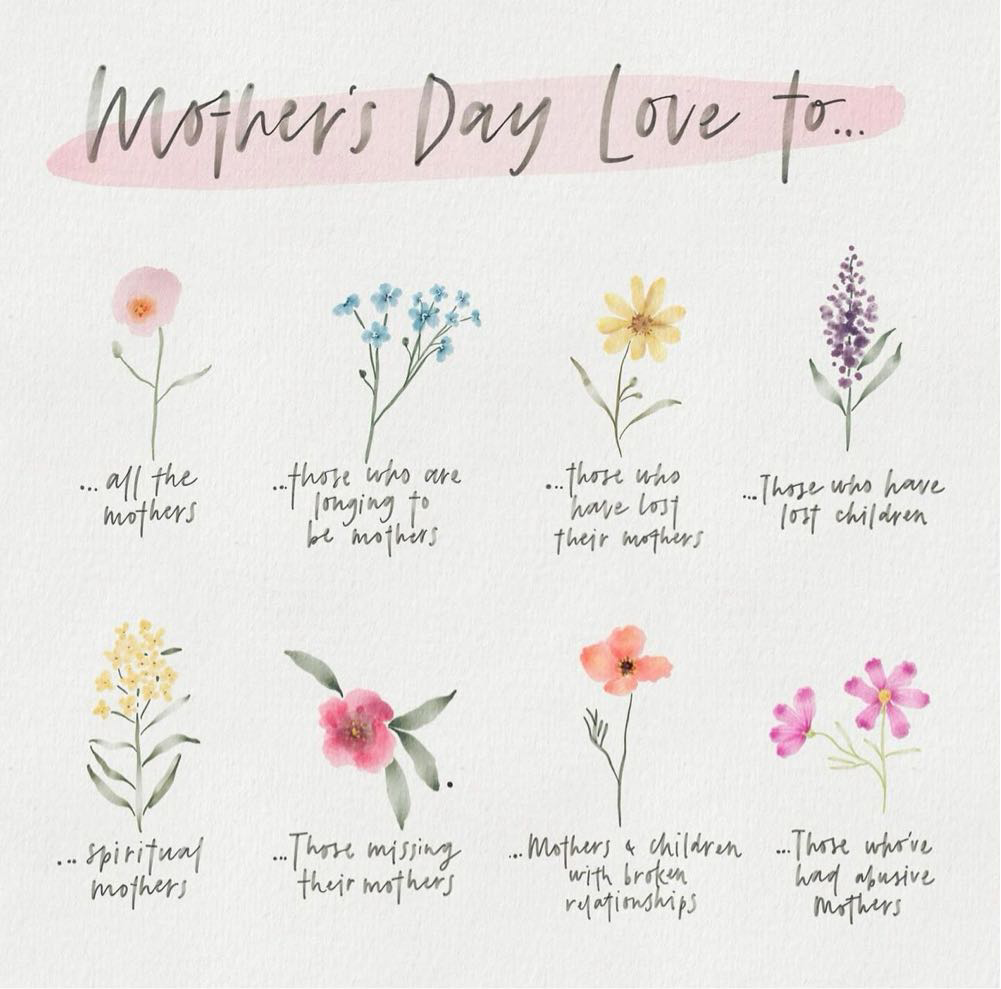 Mother's Day Love to...
...all the
mothers
...those who are
longing to
be mothers
...those who
have lost
their mothers
...Those who have
lost children
...spiritual
mothers
...Those missing
their mothers
...Mothers & children
with broken
relationships
...Those who've
had abusive
Mothers